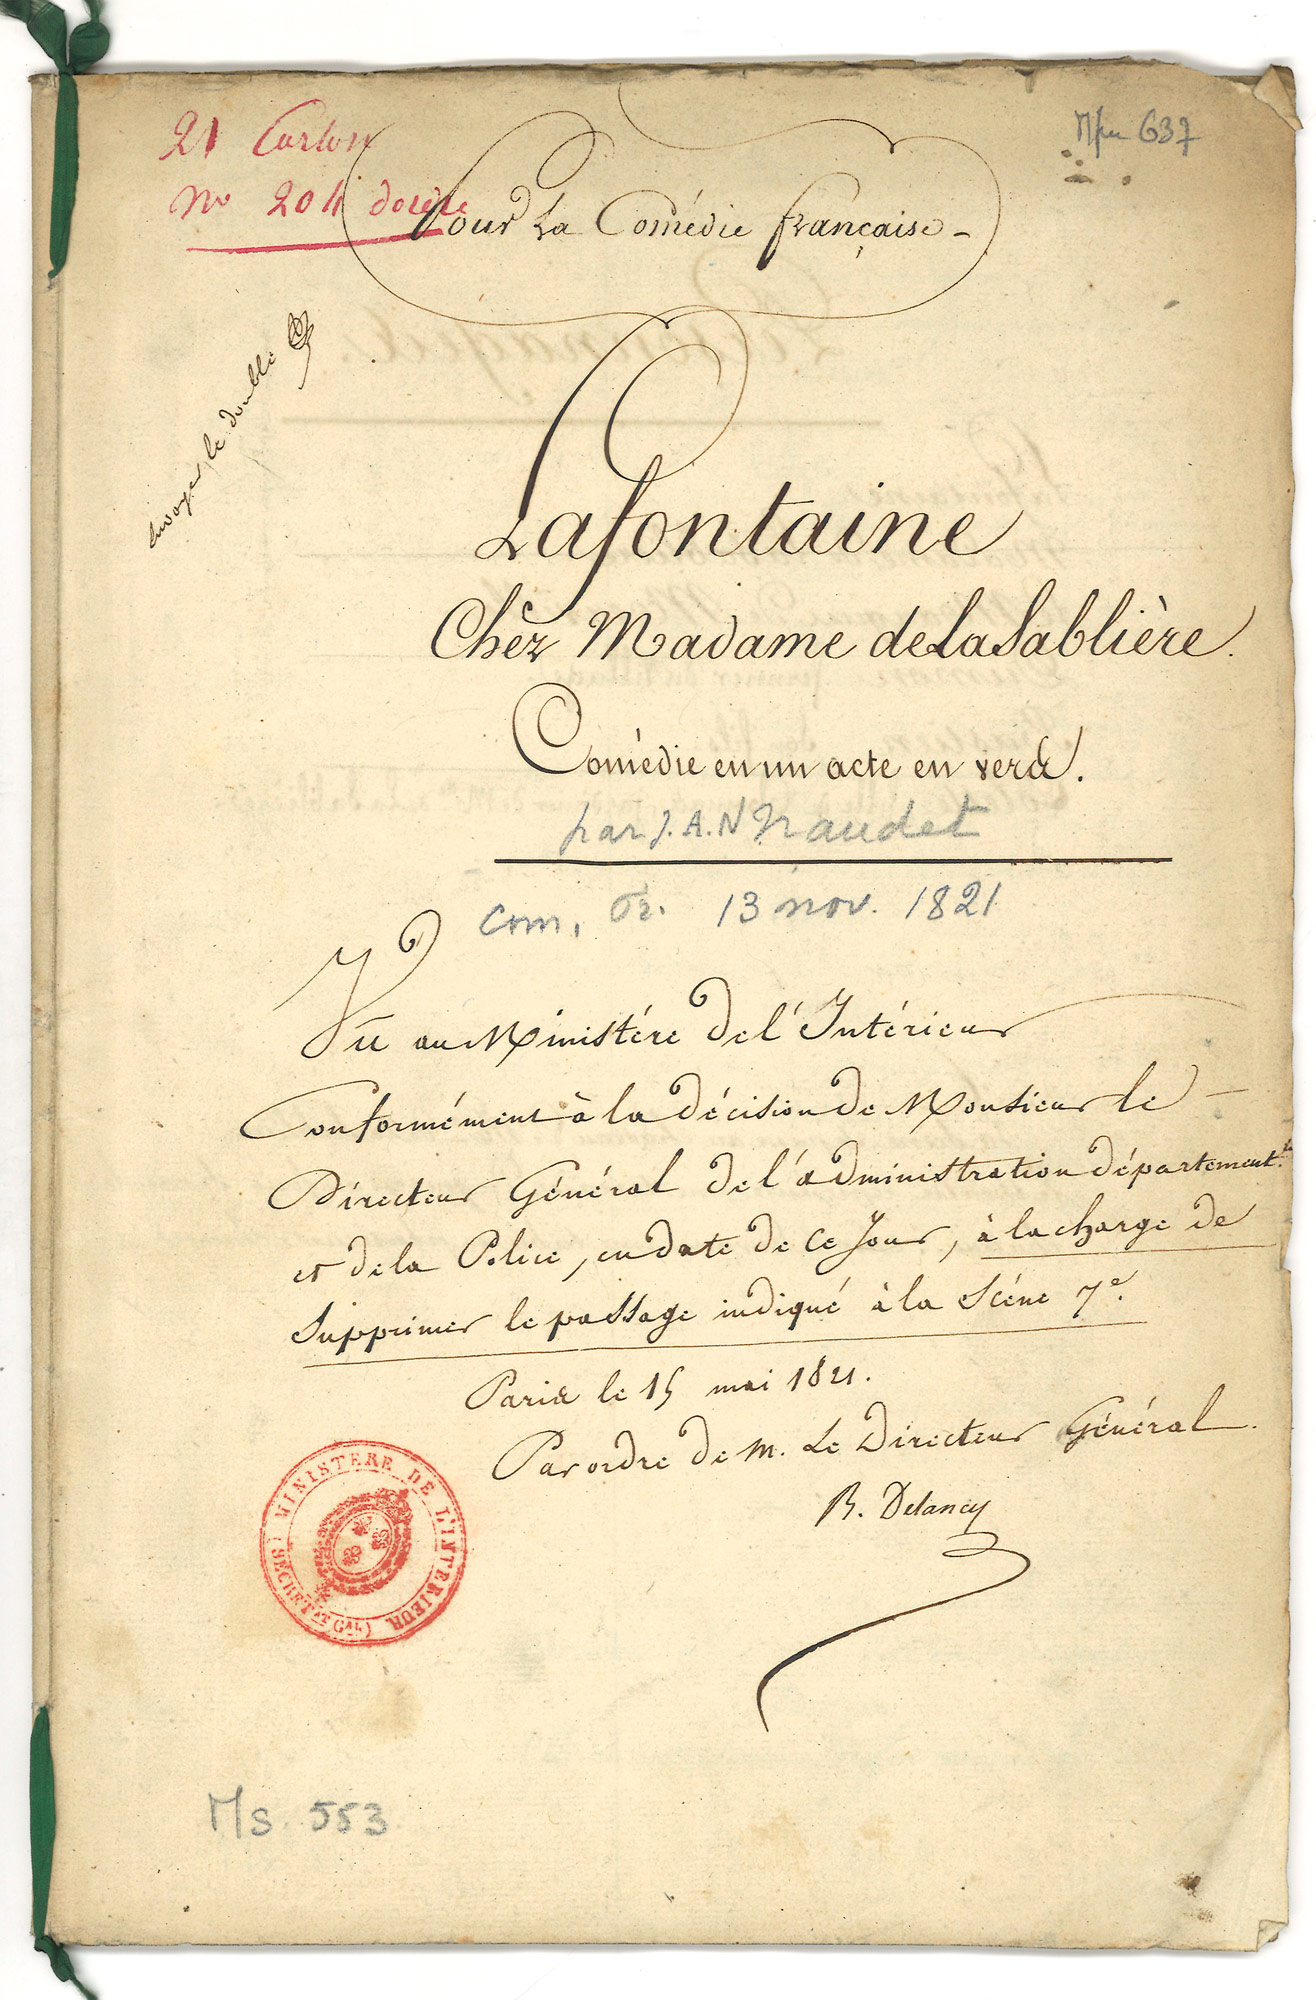 21 Carton
no 204 dossier
Mfu 637
Pour La Comédie française -
envoyer le double
Lafontaine
Chez Madame de La Sablière.
Comédie en un acte en vers.
par J. A. N Naudet
Com. Fr. 13 nov. 1821
Vu au Ministére de l'Intérieur
Conformément à la décision de Monsieur le
Directeur Général de l'administration départementle
et de la Police, en date de ce Jour, à la charge de
Supprimer le passage indiqué à la Scéne 7e.
Paris le 15 mai 1821.
Par ordre de M. Le Directeur Général.
R. Delancy
MINISTERE DE L'INTERIEUR
(SECRETAT GAL)
Ms. 553